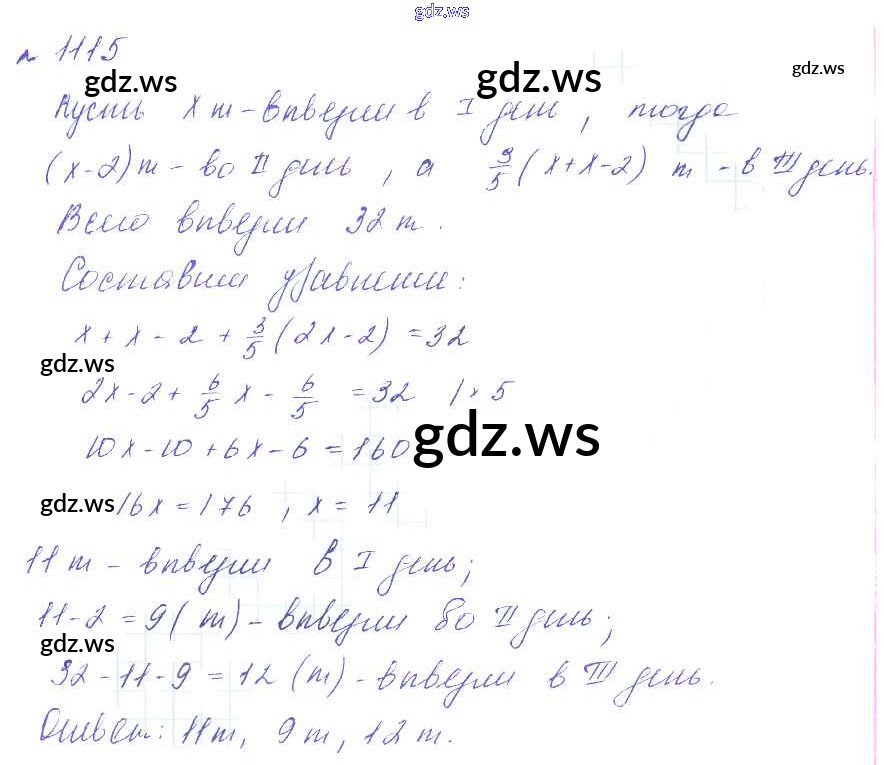 gdz.ws
№ 1115
gdz.ws gdz.ws gdz.ws
Пусть x т - в I день, тогда
(x-2) т - во II день, а 3/5 (x+x-2) т - в III день.
Всего 32 т.
Составим уравнение:
x + x - 2 + 3/5 (2x-2) = 32
gdz.ws
2x-2+ 6/5 x - 6/5 = 32 | × 5
10x-10+6x-6=160
gdz.ws
gdz.ws 16x=176, x=11
11 т - в I день;
11-2=9 (т) - во II день;
gdz.ws
32-11-9=12 (т) - в III день.
Ответ: 11т, 9т, 12т.